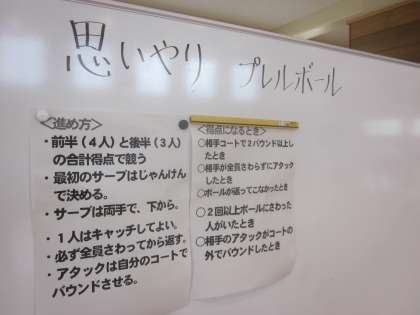 思いやり プレルボール
<進め方>
・前半(4人)と後半(3人)
の合計得点で競う
・最初のサーブはじゃんけん
で決める。
・サーブは両手で、下から。
・1人はキャッチしてよい。
・必ず全員さわってから返す。
・アタックは自分のコートで
バウンドさせる。
<得点になるとき>
○相手コートで2バウンド以上し
たとき
○相手が全員さわらずにアタック
したとき
○ボールが返ってこなかったとき
○2回以上ボールにさわった
人がいたとき
○相手のアタックがコートの
外でバウンドしたとき